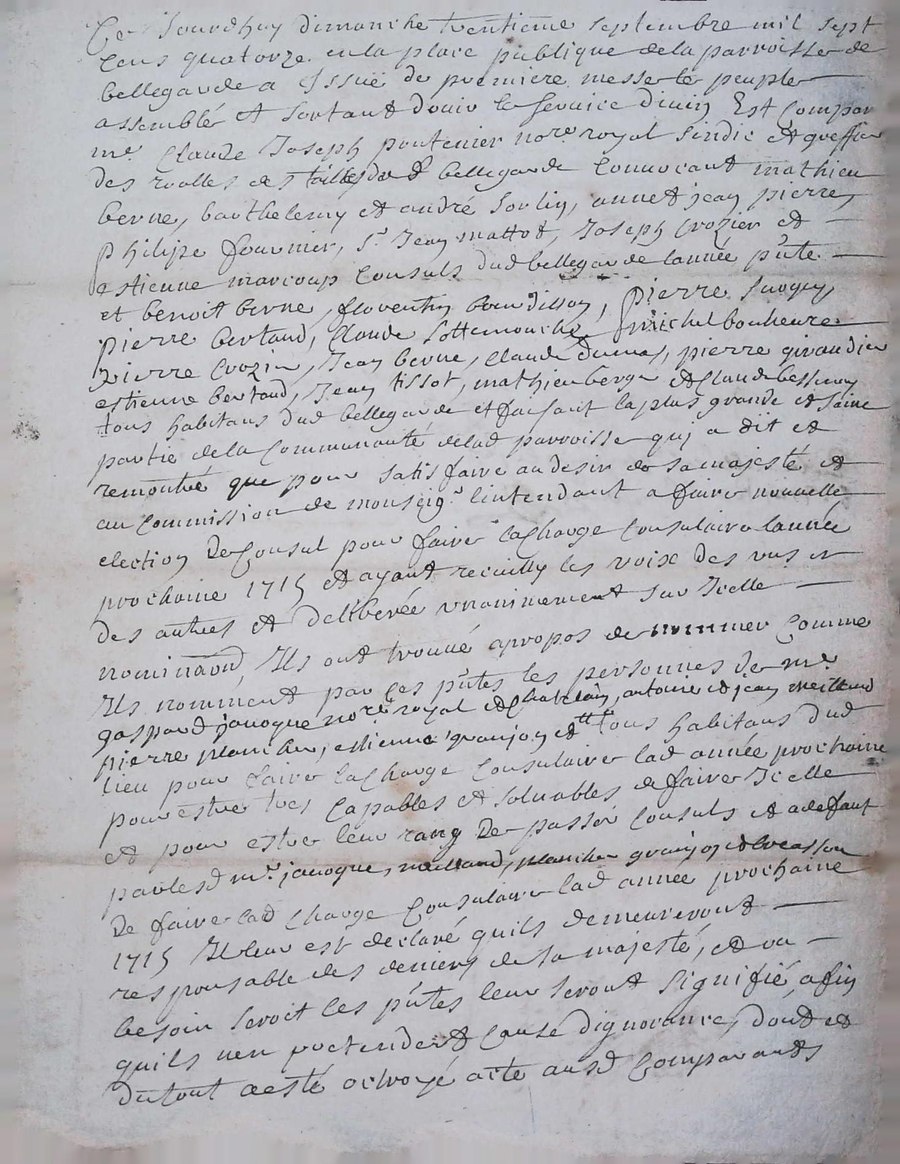 Ce Jourdhuy dimanche trentieme septembre mil sept
Cens quatorze en la place publique de la parroisse de
bellegarde a Issue de premiere messe le peuple
assemblé et sortant douir le service divin Est Compar
me. Claude Joseph pontenier nore. royal sindic et greffier
des roolles des tailles dud bellegarde Convocant mathieu
berne, barthelemy et andré sorlin, annet jean pierre,
philipe fournier, sr. Jean mattot, Joseph Crozier et
estienne marcoup Consuls dud bellegarde lannée pnte
et benoit berne, florentin beaudisson, pierre
pierre bertaud, Claude sottemouche, michel bonheure
pierre Crozier, Jean berne, Claude dumas, pierre giraudier
estienne bertaud, Jean tissot, mathieu berge et Claude bessenay
tous habitans dud bellegarde et faisant la plus grande et saine
partie de la Communauté de lad parroisse quj a dit et
remontré que pour satisfaire au desir de sa majesté et
au Commission de monseigr. lintendant a faire nouvelle
election de Consul pour faire la Charge Consulaire lannée
prochaine 1715 et ayant recuilly les voix des uns et
des autres et deliberée unanimement sur Icelle
nominaon, Ils ont trouvé apropos de nommer Comme
Ils nomment par Ces pntes les personnes de me.
gaspard jauoque nore. royal et Chatelain, antoine et jean meilland
pierre plancher, estienne granjon et tous habitans dud
lieu pour faire la Charge Consulaire lad année prochaine
pour estre tres Capables et soluables de faire Icelle
et pour estre leur rang de passer Consuls et a deffaut
par lesd me. jauoque, meilland, plancher granjon et
De faire lad Charge Consulaire lad année prochaine
1715 Il leur est declaré quils demeureront
responsable des deniers de sa majesté, et ou
besoin seroit les pntes leur seront signifié, afin
quils nen pretendent Cause dignorance, dont et
du tout a esté octroyé acte ausd Comparants